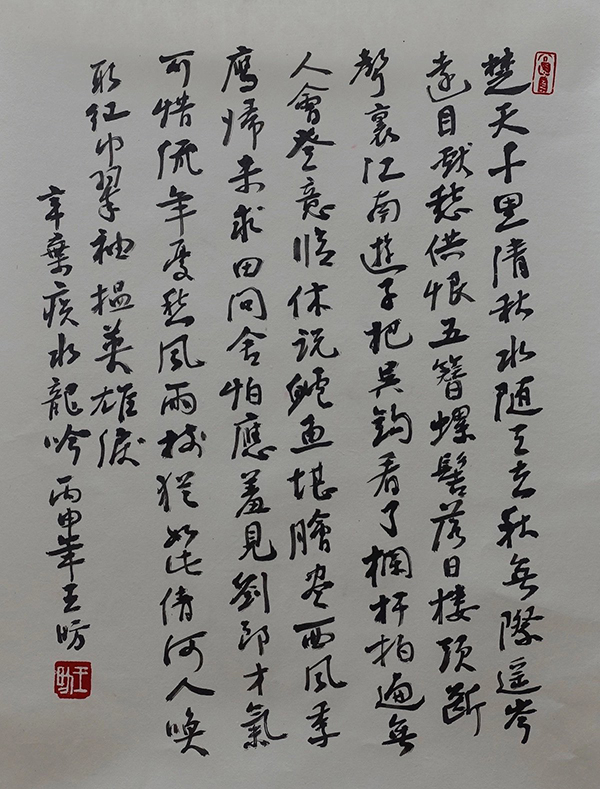 楚天千里清秋水随天去秋無際遥岑
遠目献愁供恨玉簪螺髻落日楼頭斷
聲裏江南遊子把吴鈎看了欄杆拍遍無
人會登意臨休説鱸魚堪膾盡西風季
鷹帰未求田問舍怕應羞見劉郎才氣
可惜流年憂愁風雨樹猶如此倩何人唤
取红巾翠袖揾英雄淚
辛棄疾水龍吟 丙申年王昉
王昉